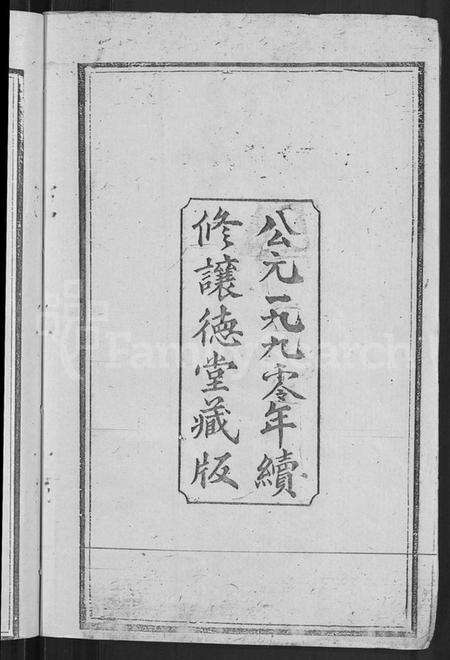 公元一九九零年續
修讓德堂藏版
FamilySearch